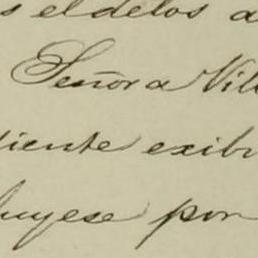 s el de los a
Señora Vill
diente exibi
buyese por